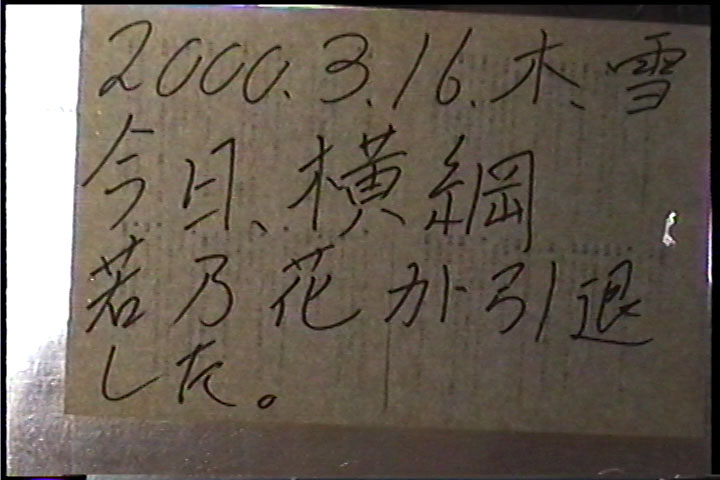 2000.3.16.木、雪
今日、横綱
若乃花が引退
した。